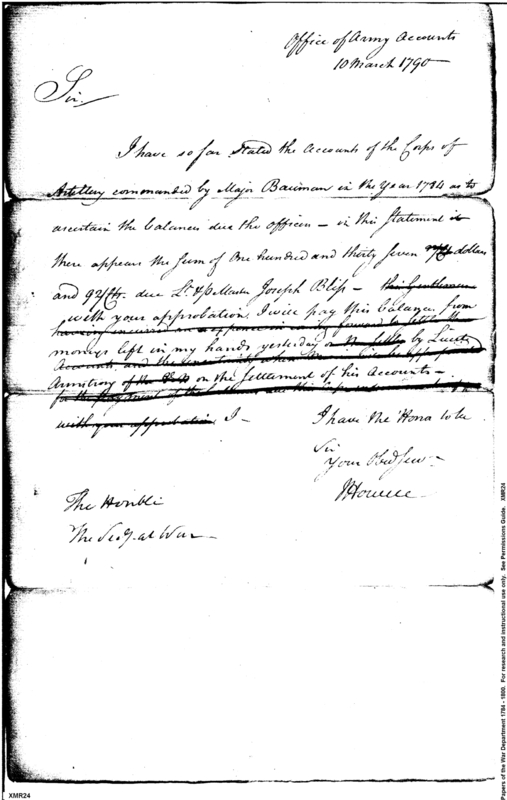 Office of Army Accounts
10 March 1790
Sir
I have so far Stated the Accounts of the Corps of
Artillery commanded by Major Bauman in the Year 1784 as to
ascertain the balances due the officers – in this Statement
there appears the Sum of One hundred and thirty Seven dollars
and 92/ due Lt & PMaster Joseph Bliss – this Gentleman
with your approbation I will pay this balance from
moneys left in my hands yesterday by Lieut
Accounts and the
Armstrong on the Settlement of his Accounts –
for the payment of the
with your approbation I –
I have the Honor to be
Sir
Your Obed Serv
JHowell
The Honble
The Secy at War
Papers of the War Department 1784 - 1800. For research and instructional use only. See Permissions Guide. XMR24
XMR24